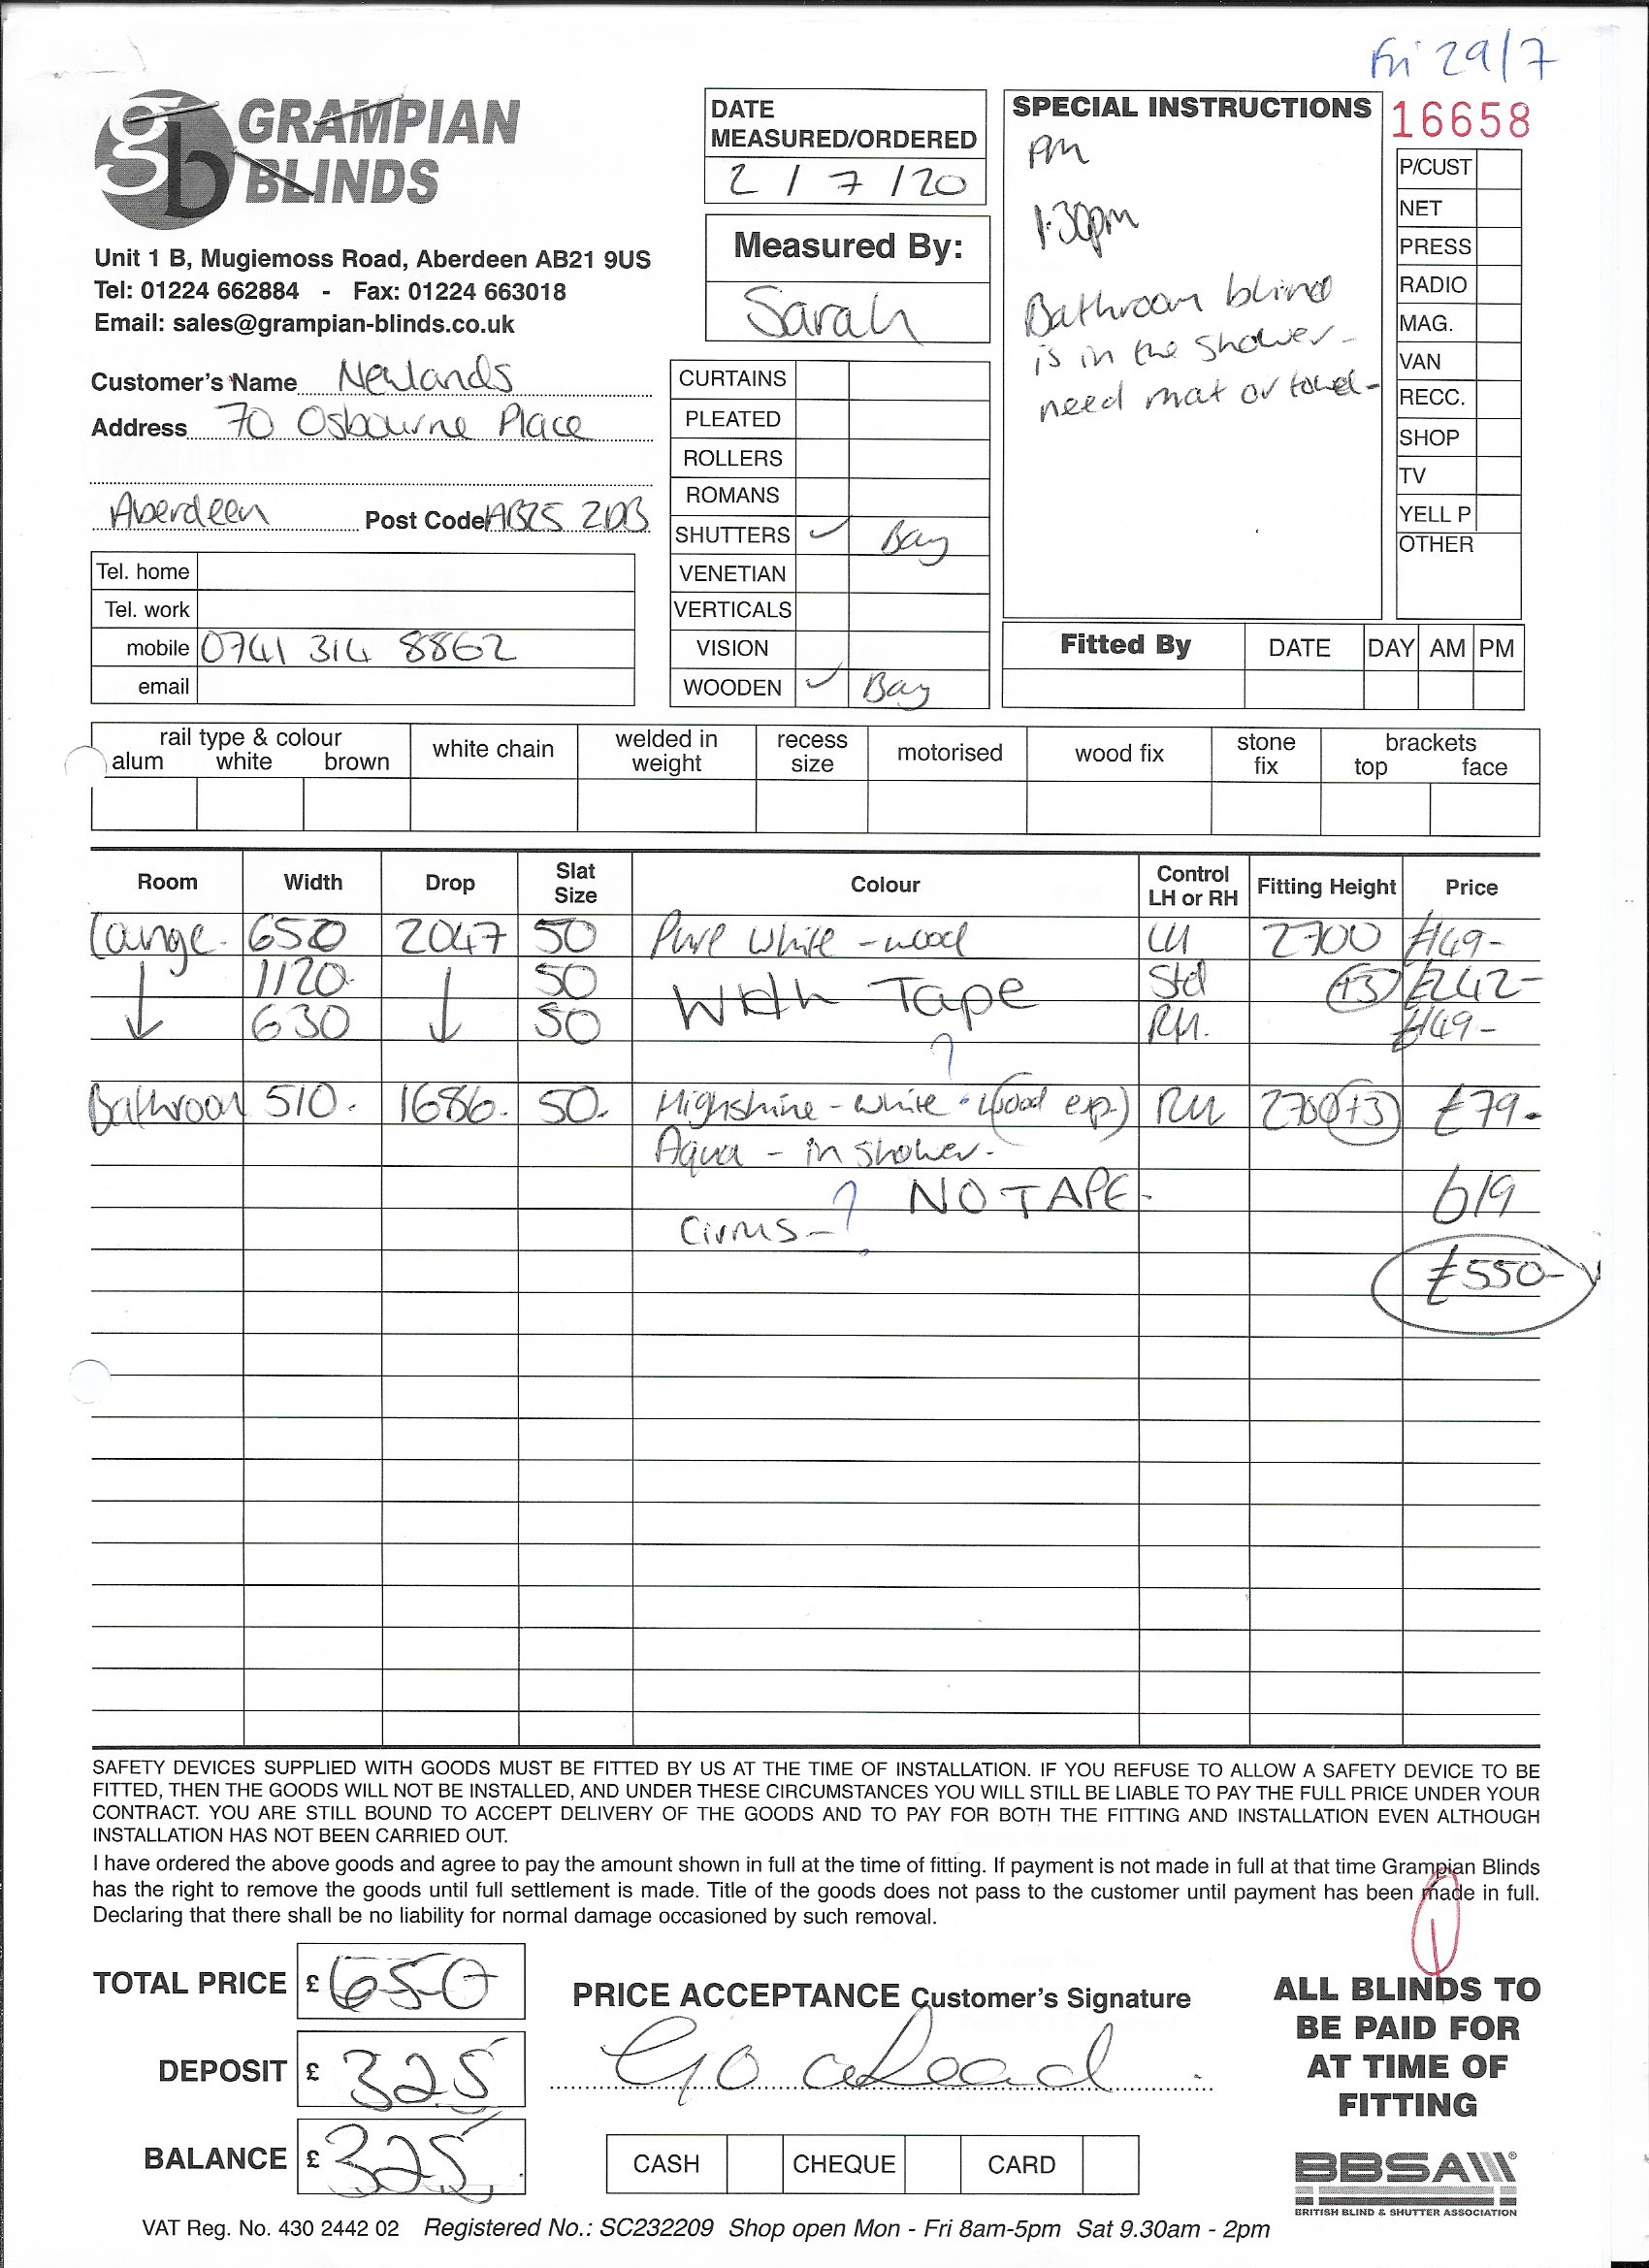 Fri 29/7
GRAMPIAN
BLINDS
Unit 1 B, Mugiemoss Road, Aberdeen AB21 9US
Tel: 01224 662884 - Fax: 01224 663018
Email: sales@grampian-blinds.co.uk
Customer's Name Newlands
Address 70 Osbourne Place
Aberdeen Post Code AB25 2DB
Tel. home
Tel. work
mobile 0741 314 8862
email
DATE
MEASURED/ORDERED
2 / 7 / 20
Measured By:
Sarah
CURTAINS
PLEATED
ROLLERS
ROMANS
SHUTTERS ✓ Bay
VENETIAN
VERTICALS
VISION
WOODEN ✓ Bay
SPECIAL INSTRUCTIONS
pm
1.30pm
Bathroom blind
is in the shower -
need mat or towel -
16658
P/CUST
NET
PRESS
RADIO
MAG.
VAN
RECC.
SHOP
TV
YELL P
OTHER
Fitted By DATE DAY AM PM
rail type & colour
alum white brown
white chain
welded in weight
recess size
motorised
wood fix
stone fix
brackets
top face
Room Width Drop Slat Size Colour Control LH or RH Fitting Height Price
Lounge. 650 2047 50 Pure White - wood LH 2700 £149-
1120. 50 With Tape Std (+3) £242-
630 50 RH. £149-
?
Bathroom 510. 1686. 50. Highshine - white • (wood exp.) RH 2700 (+3) £79-
Aqua - in shower.
? NO TAPE - 619
Cirrus -
£550-
SAFETY DEVICES SUPPLIED WITH GOODS MUST BE FITTED BY US AT THE TIME OF INSTALLATION. IF YOU REFUSE TO ALLOW A SAFETY DEVICE TO BE
FITTED, THEN THE GOODS WILL NOT BE INSTALLED, AND UNDER THESE CIRCUMSTANCES YOU WILL STILL BE LIABLE TO PAY THE FULL PRICE UNDER YOUR
CONTRACT. YOU ARE STILL BOUND TO ACCEPT DELIVERY OF THE GOODS AND TO PAY FOR BOTH THE FITTING AND INSTALLATION EVEN ALTHOUGH
INSTALLATION HAS NOT BEEN CARRIED OUT.
I have ordered the above goods and agree to pay the amount shown in full at the time of fitting. If payment is not made in full at that time Grampian Blinds
has the right to remove the goods until full settlement is made. Title of the goods does not pass to the customer until payment has been made in full.
Declaring that there shall be no liability for normal damage occasioned by such removal.
TOTAL PRICE £ 650
DEPOSIT £ 325
BALANCE £ 325
PRICE ACCEPTANCE Customer's Signature
Go ahead
CASH CHEQUE CARD
ALL BLINDS TO
BE PAID FOR
AT TIME OF
FITTING
BBSA
BRITISH BLIND & SHUTTER ASSOCIATION
VAT Reg. No. 430 2442 02 Registered No.: SC232209 Shop open Mon - Fri 8am-5pm Sat 9.30am - 2pm